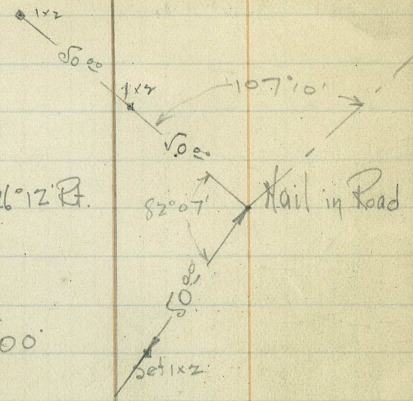 1x2
50.00
1x2
107°10'
50.00
6°12' Rt.
82°07'
Nail in Road
50.00
00'
Set 1x2